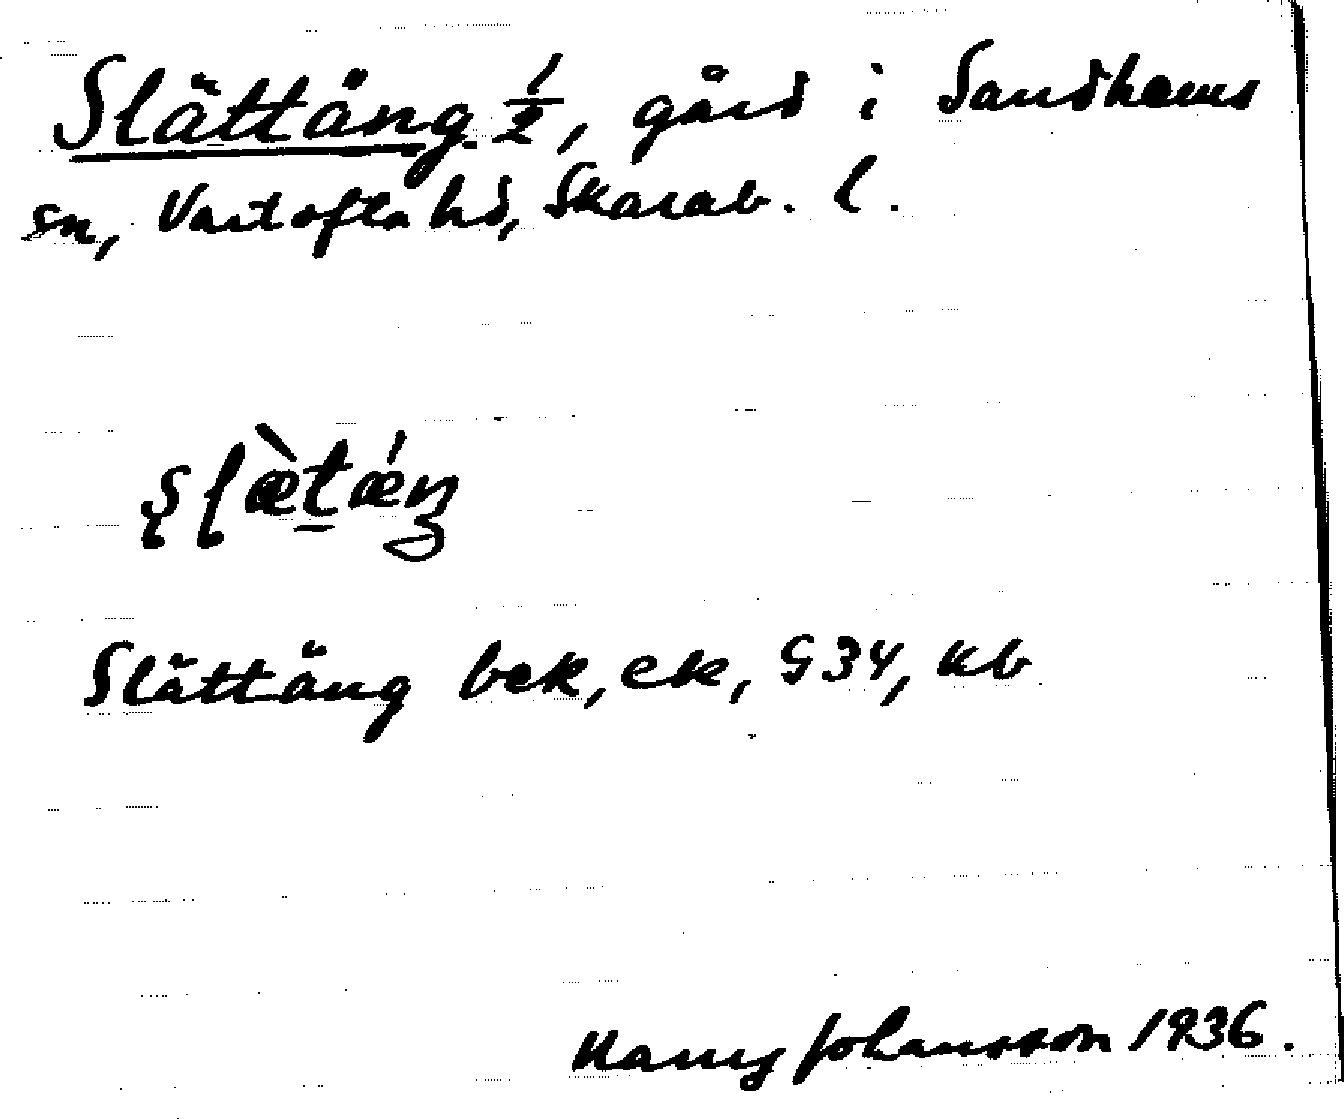 Slättäng ½, gård i Sandhems
sn, Vartofta hd, Skarab. l.
slæ̀tǽŋ
Slättäng bek, ek, G34, kb
Harry Johansson 1936.